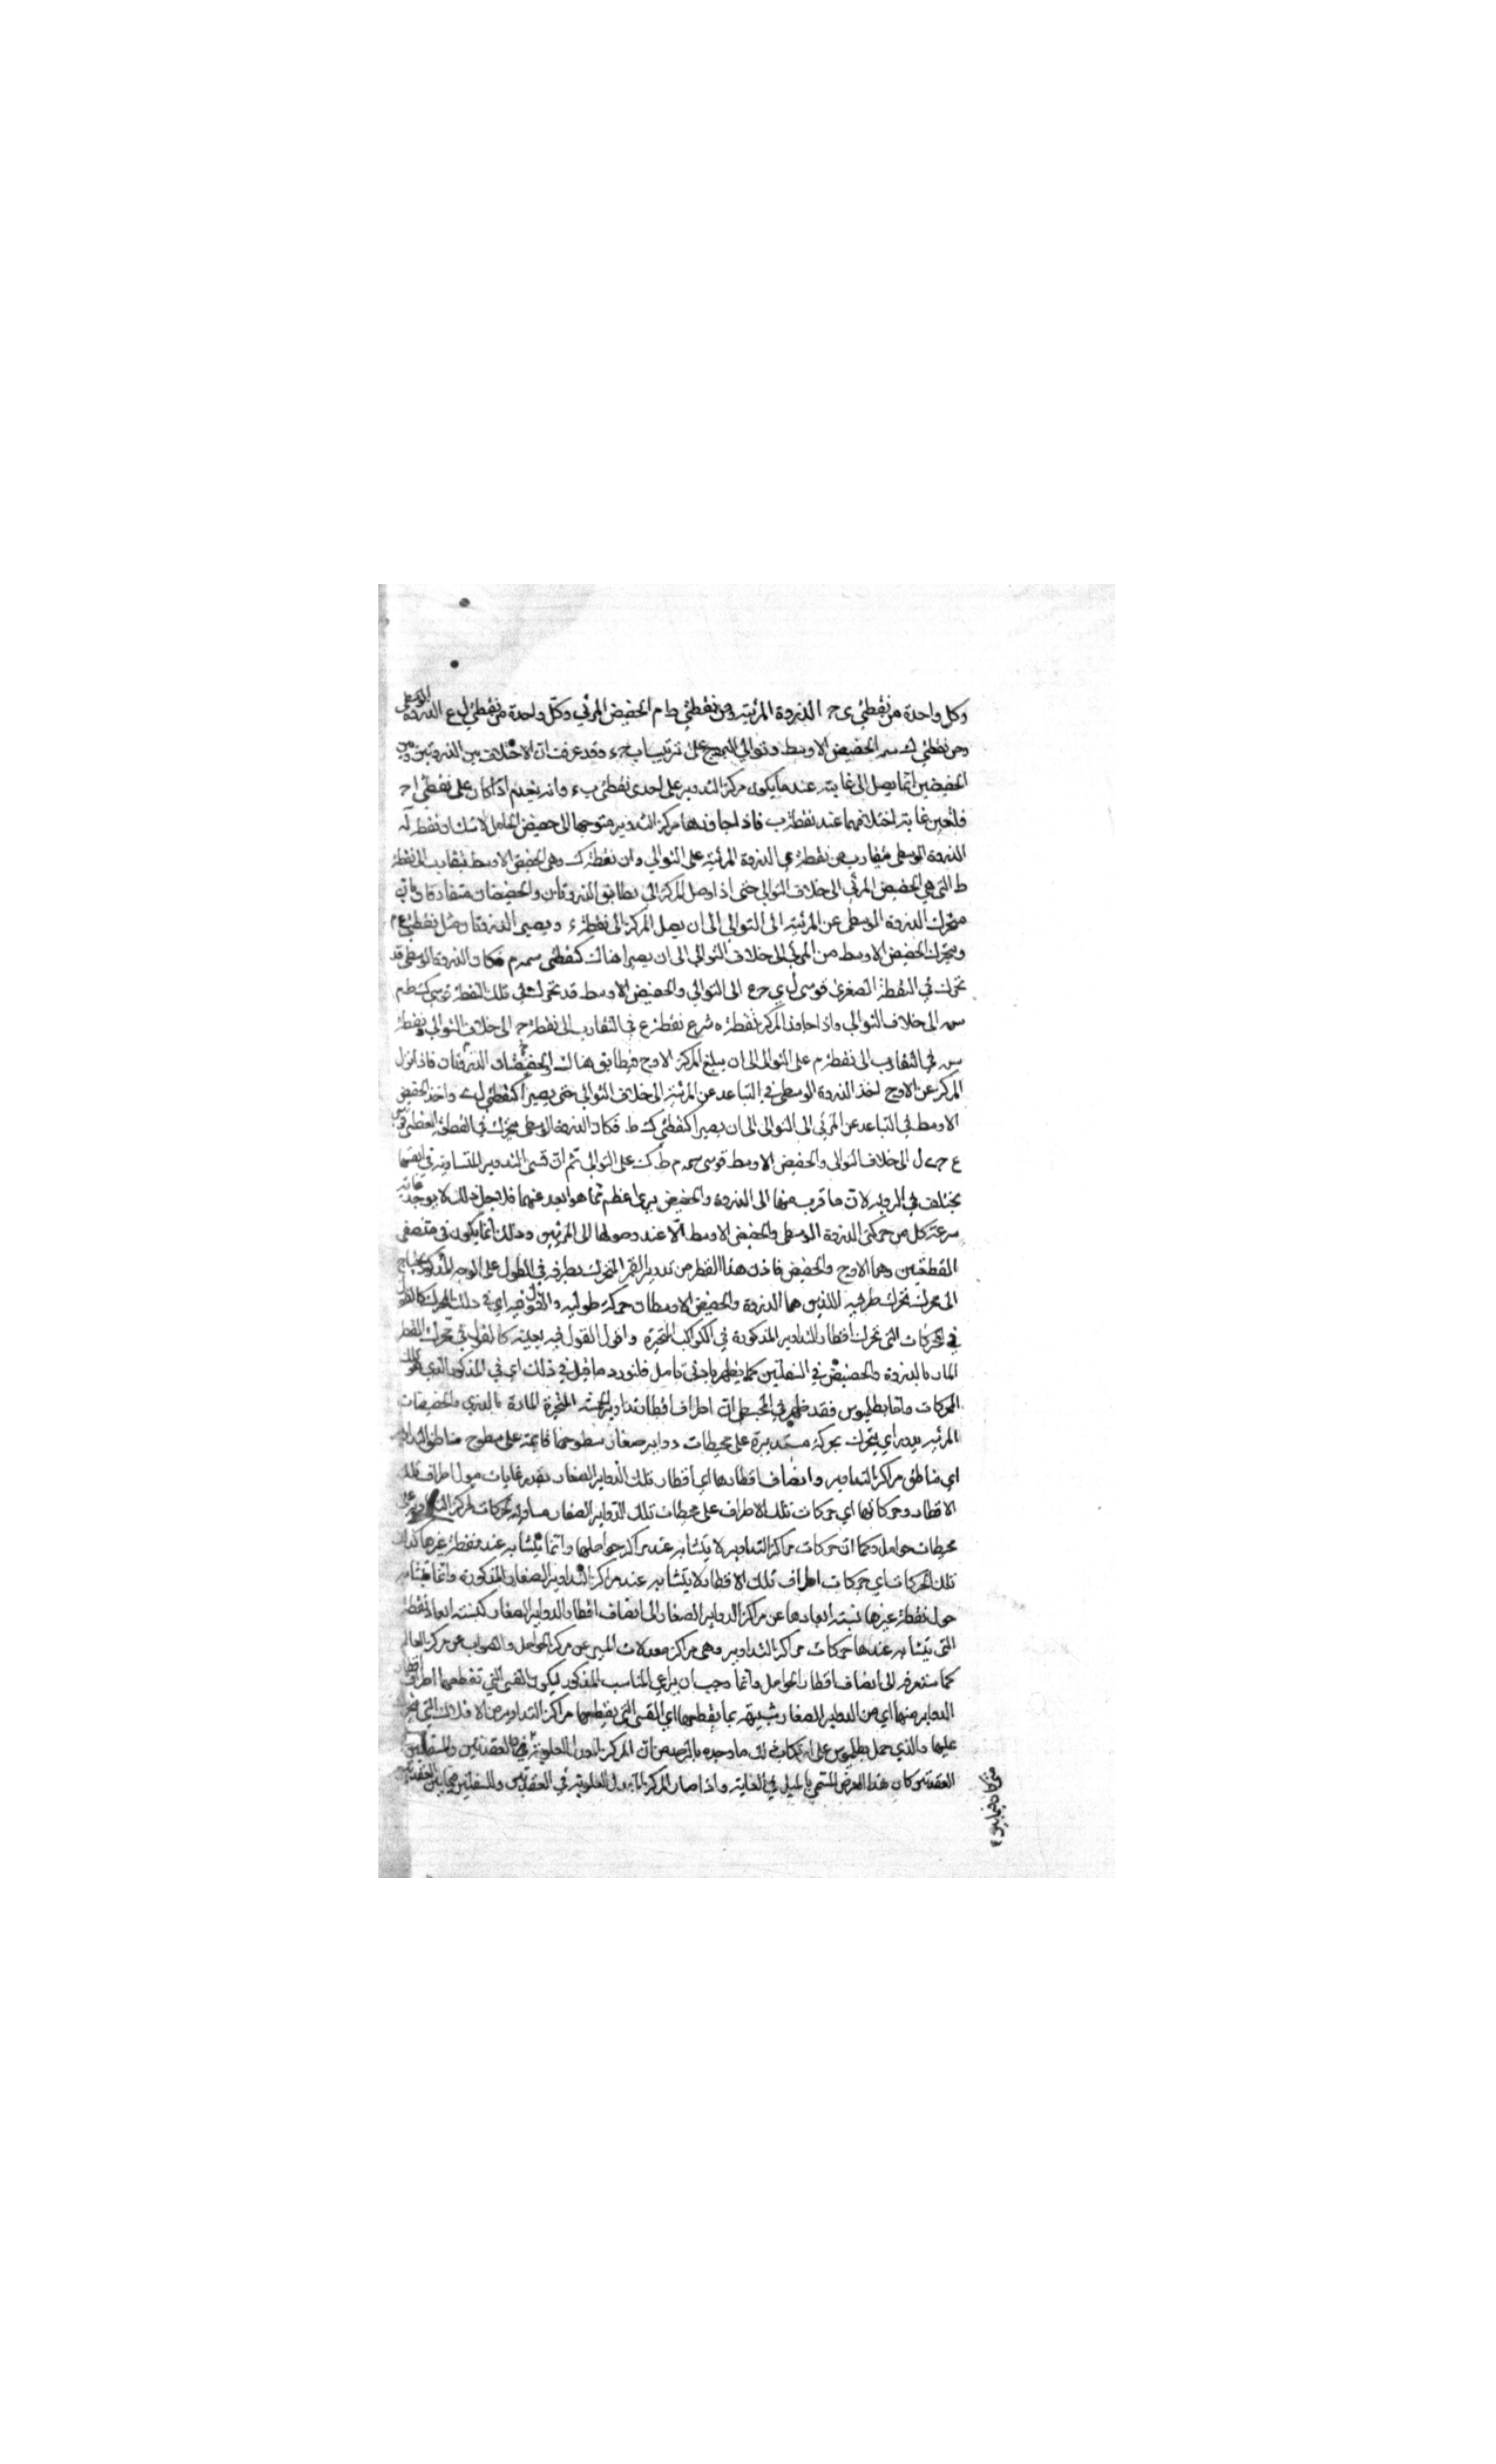 وكل واحدة من نقطتي ى ح الذروة المرئية ومن نقطتي ط م الحضيض المرئي وكل واحدة من نقطتي ل ع الذروة الوسطى
ومن نقطتي ك س الحضيض الاوسط وتوالي البروج على ترتيب ا ب ح ء وقد عرفت ان الاختلاف بين الذروتين وبين
الحضيضين انما يصل الى غايته عندما يكون مركز التدوير على احدى نقطتي ب ء وانه ينعدم اذا كان على نقطتي ا ح
فلتعين غاية اختلافهما عند نقطة ب فاذا جاوزها مركز التدوير متوجها الى حضيض الحامل لا شك ان نقطة ل
الذروة الوسطى متقارب من نقطة ى الذروة المرئية على التوالي وان نقطة ك وهي الحضيض الاوسط يتقارب الى نقطة
ط التي هي الحضيض المرئي الى خلاف التوالي حتى اذا وصل المركز الى يطابق الذروتان والحضيضان
متحرك الذروة الوسطى عن المرئية الى التوالي الى ان يصل المركز الى نقطة ء ويصير الذروتان مثل نقطتي ع م
ويتحرك الحضيض الاوسط من المرئي الى خلاف التوالي الى ان يصيرا هناك كنقطتي س م فكان الذروة الوسطى قد
تحرك في القطعة الصغرى قوسي ل ى ح ع الى التوالي والحضيض الاوسط قد تحرك في تلك القطعة قوسي ك ط م
س الى خلاف التوالي واذا جاوز المركز نقطة ء شرع نقطة ع في التقارب الى نقطة ح الى خلاف التوالي ونقطة
س في التقارب الى نقطة م على التوالي الى ان يبلغ المركز الاوج فيطابق هناك الحضيضان الذروتان فاذا نزل
المركز عن الاوج اخذ الذروة الوسطى في التباعد عن المرئية الى خلاف التوالي حتى يصيرا كنقطتي ل ى واخذ الحضيض
الاوسط في التباعد عن المرئي الى التوالي الى ان يصيرا كنقطتي ك ط فكان الذروة الوسطى يتحرك في القطعة العظمى قوسي
ع ح ى ل الى خلاف التوالي والحضيض الاوسط قوسي س م ط ك على التوالي ثم ان قسي التدوير المتساوية في انفسها
يختلف في الرؤية لان ما قرب منها الى الذروة والحضيض يرى اعظم مما هو ابعد عنهما فلاجل ذلك لا يوجد غاية
سرعة كل من حركتي الذروة الوسطى والحضيض الاوسط الا عند وصولها الى المرئيين وذلك انما يكون في منتصفي
القطعتين وهما الاوج والحضيض فاذن هذا القطر من تدوير القمر المتحرك بطرفيه في الطول على الوجه المذكور يحتاج
الى محرك تحرك طرفيه اللذين هما الذروة والحضيض الاوسطان حركة طولية والقول فيه اي في ذلك المحرك كالقول
في الحركات التي تحرك اقطار التداوير المذكورة في الكواكب المتحيرة واقول القول فيه بعينه كالقول في تحرك القطر
المار بالذروة والحضيض في السفليين كما يظهر بادنى تامل فلنورد ما قيل في ذلك اي في المذكور الذي هو تلك
الحركات اما بطليموس فقد ظهر في المجسطي ان اطراف اقطار تداوير الخمسة المتحيرة المارة بالذرى والحضيضات
المرئية يدور اي يتحرك بحركة مستديرة على محيطات دواير صغار سطوحها قايمة على سطوح مناطق التداوير
اي مناطق مراكز التداوير وانصاف اقطارها اي اقطار تلك الدواير الصغار بقدر غايات ميول اطراف تلك
الاقطار وحركاتها اي حركات تلك الاطراف على محيطات تلك الدواير الصغار مساوية لحركات مراكز التداوير على
محيطات حوامل وكما ان حركات مراكز التداوير لا يتشابه عند مراكز حواملها وانما يتشابه عند نقطة غيرها كذلك
تلك الحركات اي حركات اطراف تلك الاقطار لا يتشابه عند مراكز الدواير الصغار المذكورة وانما يتشابه
حول نقطة غيرها نسبة ابعادها عن مراكز الدواير الصغار الى انصاف اقطار الدواير الصغار كنسبة ابعاد نقطة
التي يتشابه عندها حركات مراكز التداوير وهي مراكز معدلات المسير عن مركز الحوامل والصواب عن مركز العالم
كما ستعرفه الى انصاف اقطار الحوامل وانما وجب ان يراعى التناسب المذكور ليكون القسي التي تقطعها اطراف اقطار
الدواير منها اي من الدواير الصغار شبيهة بما يقطعها اي القسي التي يقطعها مراكز التداوير من الافلاك التي
عليها والذي حمل بطليموس على ارتكاب ذلك ما وجده بالرصد من ان المركز العلوية في العقدتين وللسفليين
العقدتين كان هذا العرض المسمى بالميل في الغاية واذا صار المركز العلوية في العقدتين وللسفليين